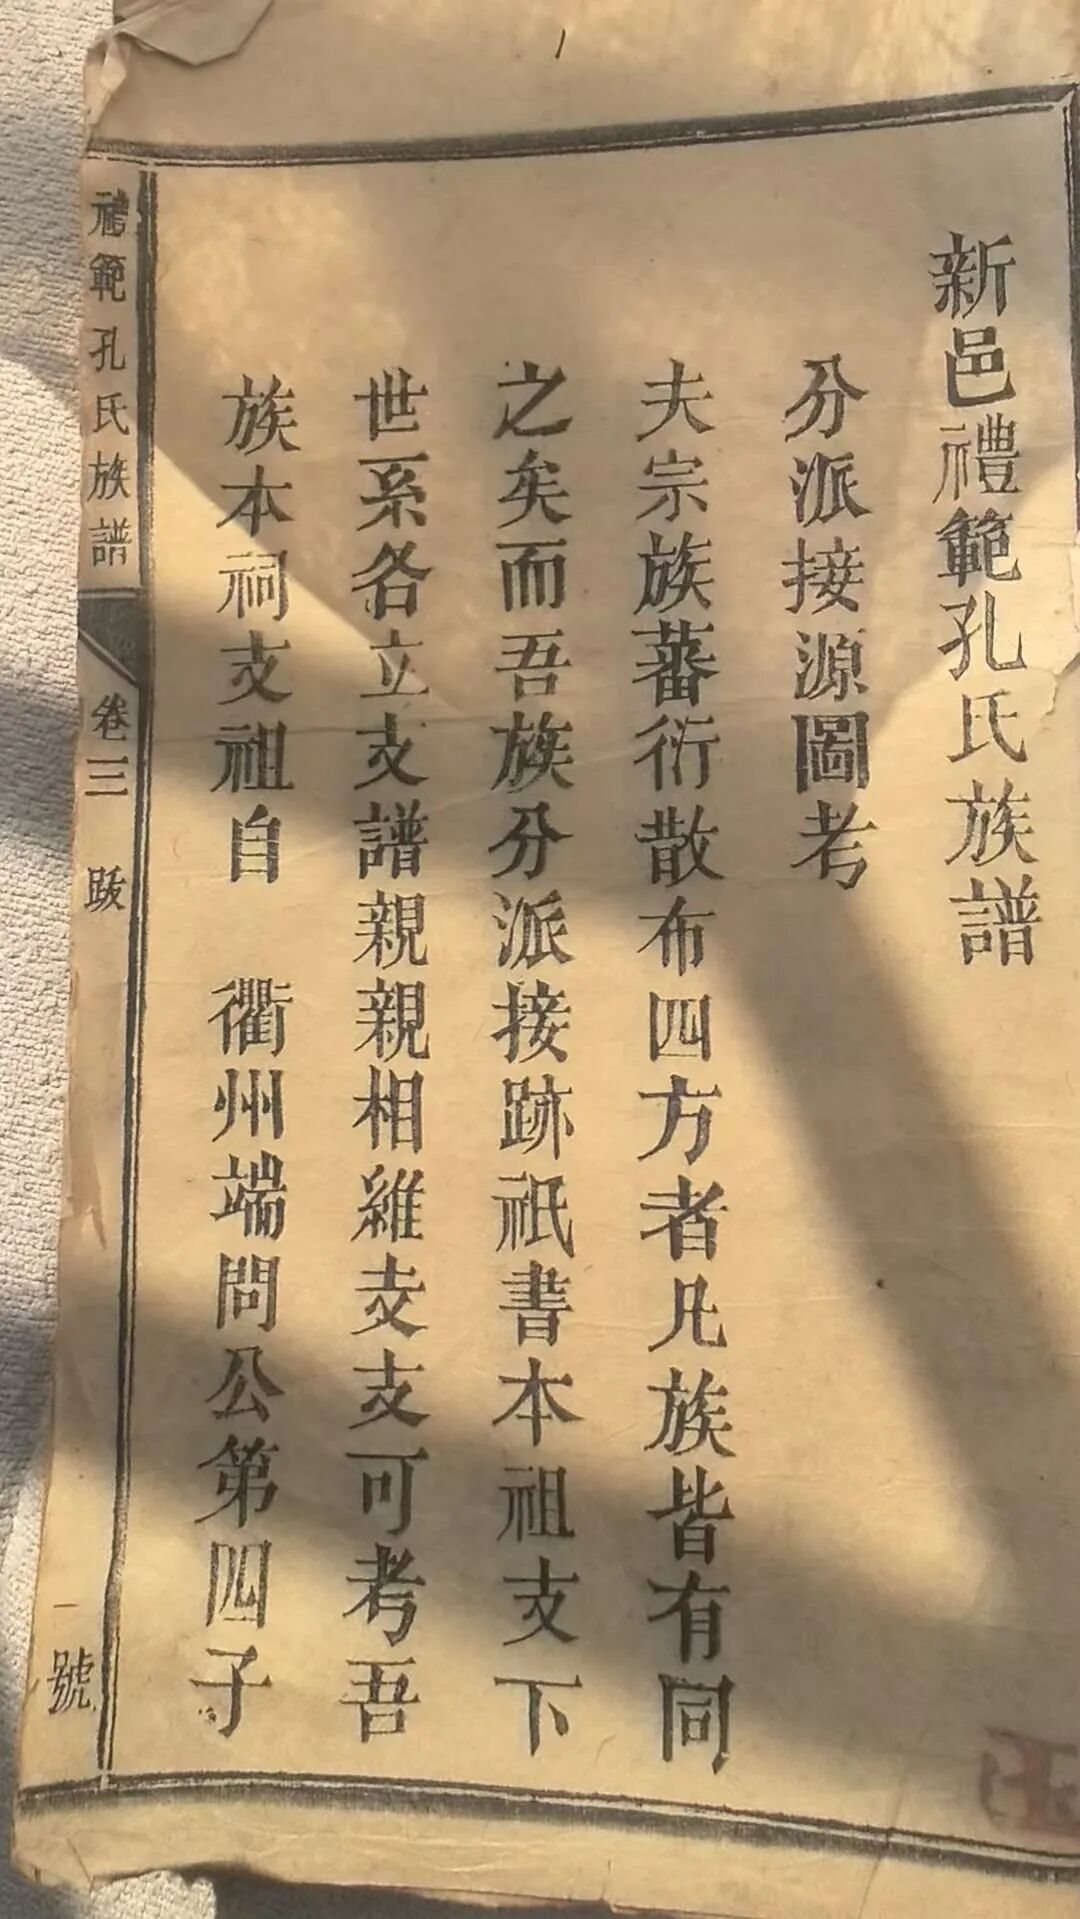 新邑禮範孔氏族譜
分派接源圖考
夫宗族蕃衍散布四方者凡族皆有同
之矣而吾族分派接跡祇書本祖支下
世系各立支譜親親相維支支可考吾
族本祠支祖自 衢州端問公第四子
禮範孔氏族譜
卷三 跋
一號